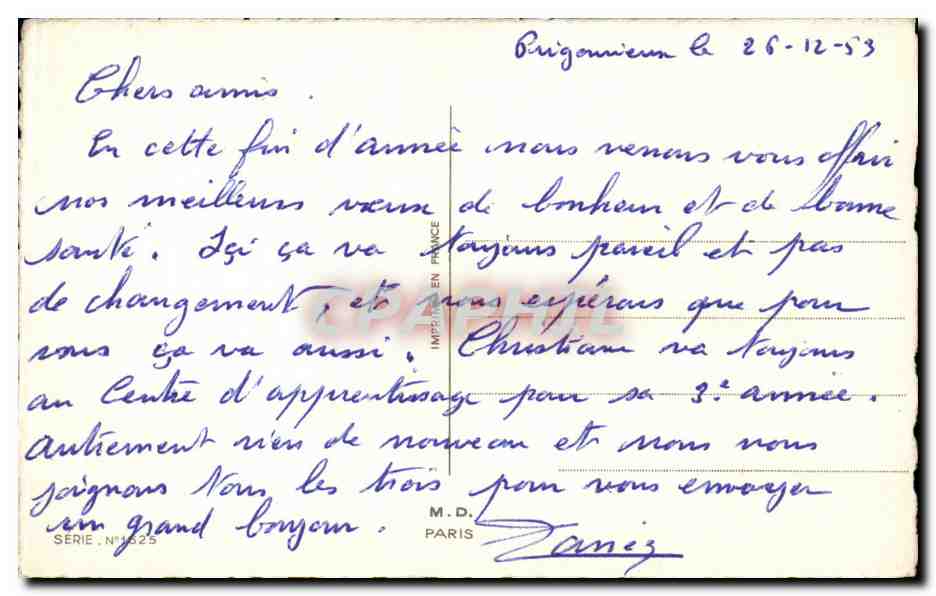 Prigonrieux le 26-12-53
Chers amis.
En cette fin d'année nous venons vous offrir
nos meilleurs vœux de bonheur et de bonne
santé. Içi ça va toujours pareil et pas
de changement, et nous espérons que pour
vous ça va aussi. Christiane va toujours
au Centre d'apprentissage pour sa 3e année.
Autrement rien de nouveau et nous nous
joignons tous les trois pour vous envoyer
un grand bonjour.
IMPRIMÉ EN FRANCE
CPAPHIL
M.D.
PARIS
SÉRIE. N°1525